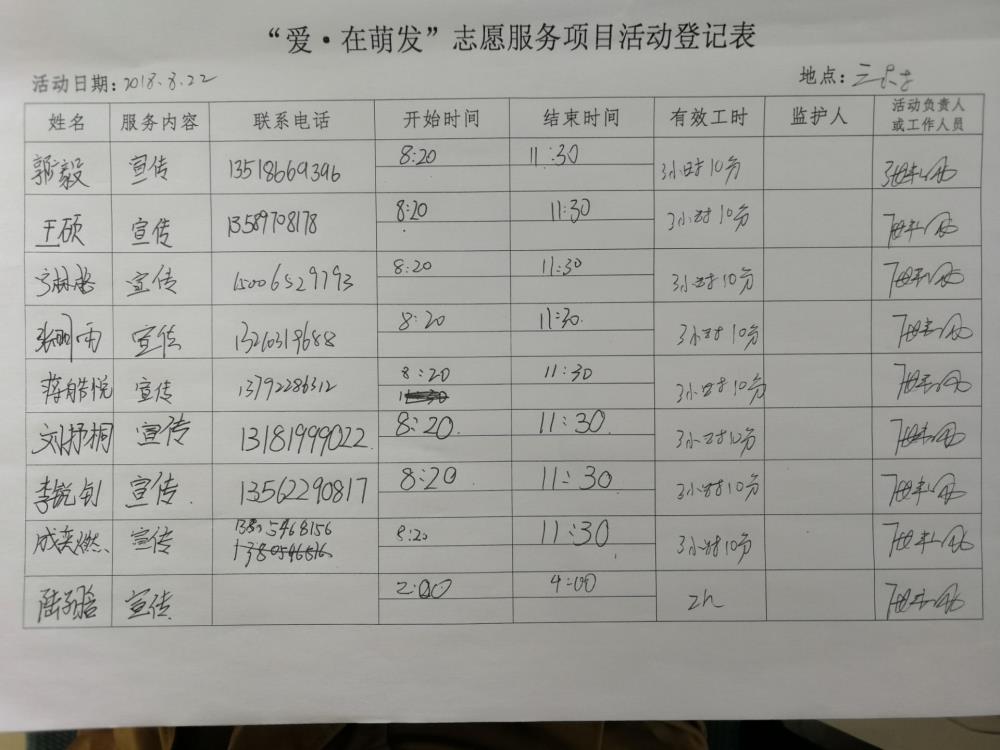 “爱·在萌发”志愿服务项目活动登记表
活动日期：2018.8.22 地点：
姓名 服务内容 联系电话 开始时间 结束时间 有效工时 监护人 活动负责人或工作人员
郭毅 宣传 13518669396 8:20 11:30 3小时10分
王硕 宣传 13589708178 8:20 11:30 3小时10分
宣传 15006529793 8:20 11:30 3小时10分
张明雨 宣传 13263196688 8:20 11:30. 3小时10分
蒋皓悦 宣传 13792286312 8:20 11:30 3小时10分
刘抒桐 宣传 13181999022. 8:20. 11:30. 3小时10分
李锐钊 宣传. 13562290817 8:20 11:30 3小时10分
成奕燃、 宣传 8:20 11:30 3小时10分
宣传 2:00 4:00 2h